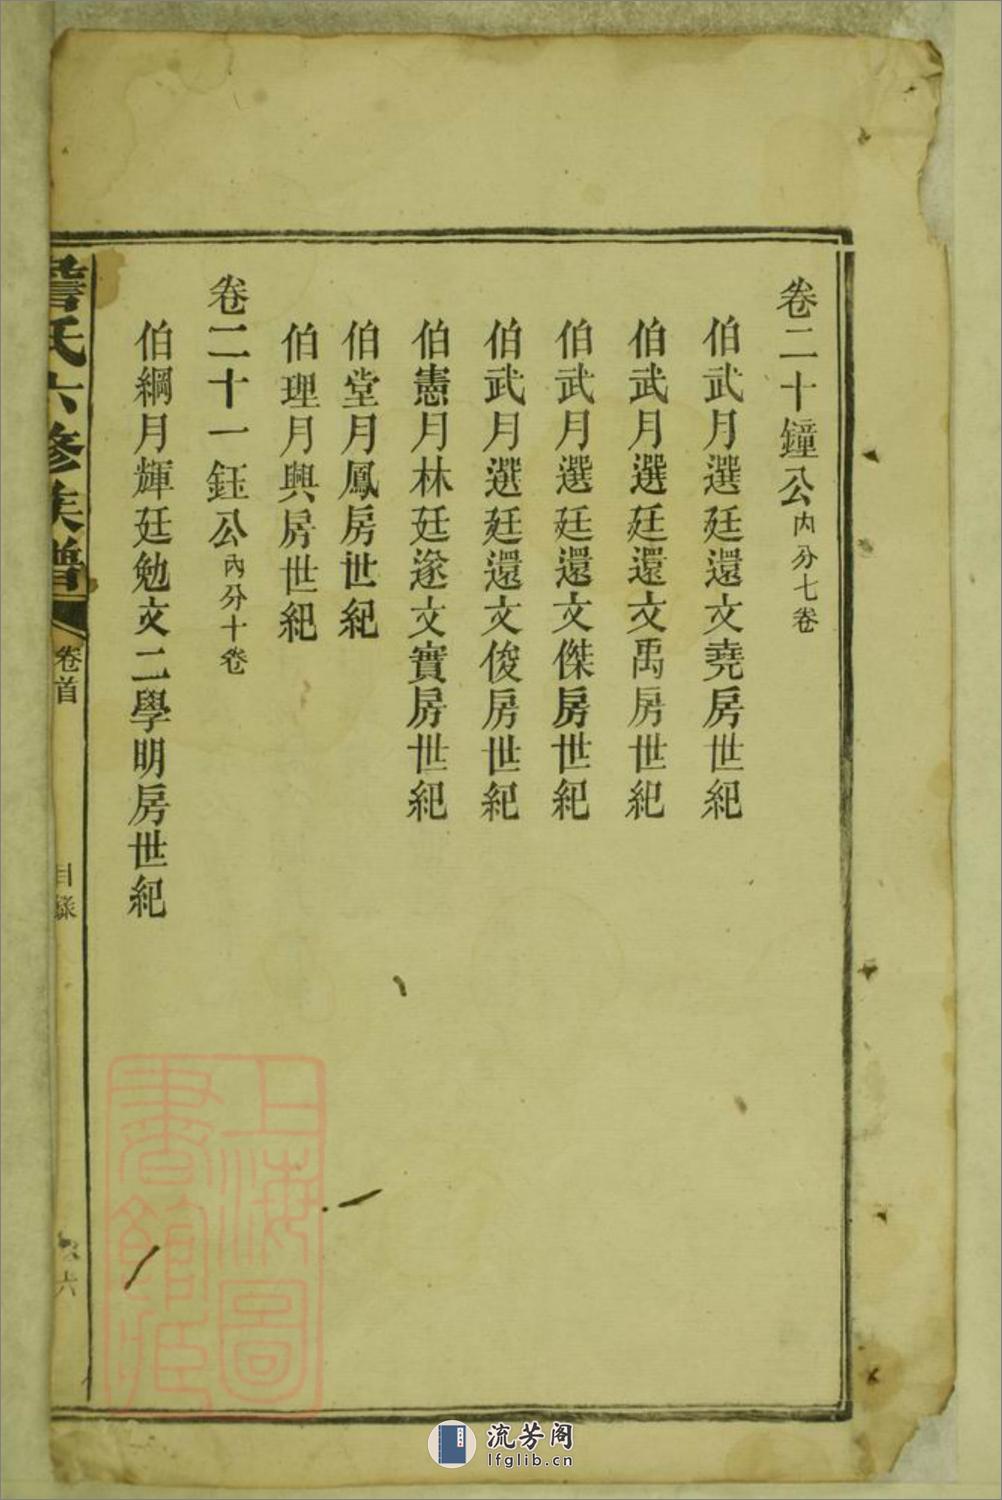 卷二十鐘公內分七卷
伯武月選廷還文堯房世紀
伯武月選廷還文禹房世紀
伯武月選廷還文傑房世紀
伯武月選廷還文俊房世紀
伯憲月林廷遂文實房世紀
伯堂月鳳房世紀
伯理月興房世紀
卷二十一鈺公內分十卷
伯綱月輝廷勉文二學明房世紀
詹氏六修族譜
卷首
目錄
六
上海圖
書館藏
流芳阁
lfglib.cn